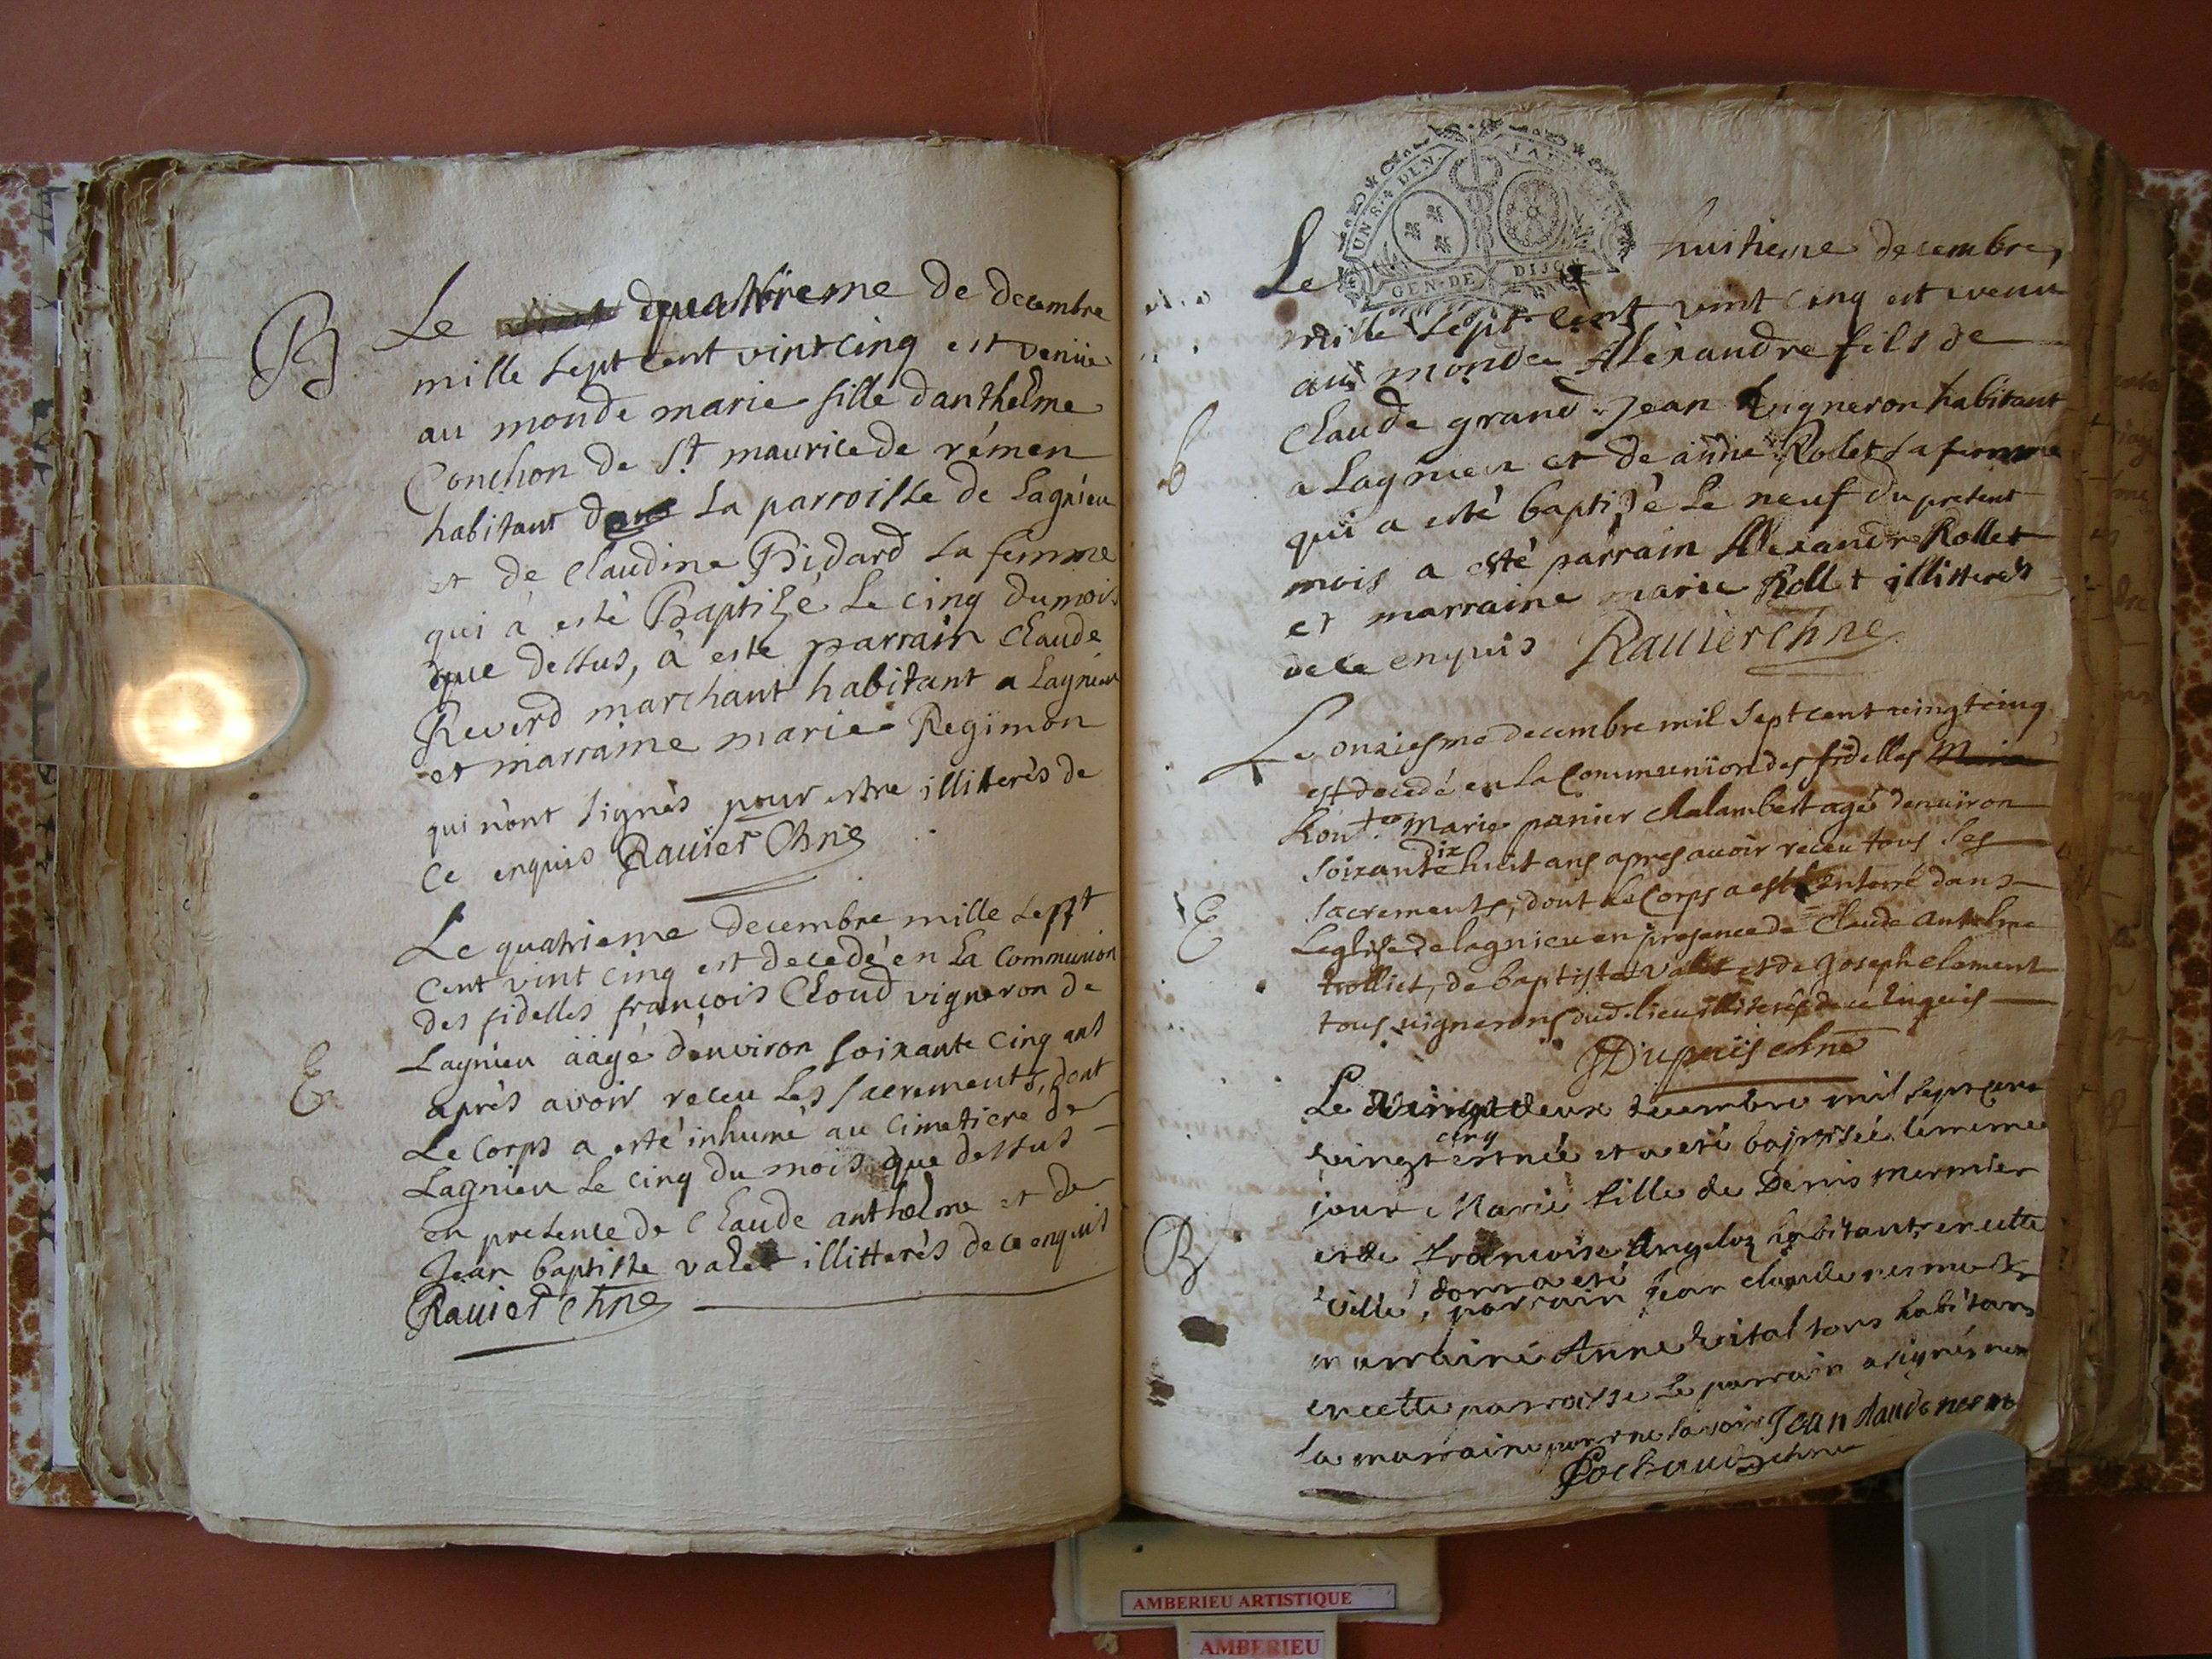 B
Le quatrieme de decembre
mille sept cent vint cinq est venüe
au monde marie fille danthelme
Conchon de St maurice de rémen
habitant dans la parroisse de Lagnieu
et de Claudine Bidard sa femme
qui à esté Baptizé le cinq du mois
que dessus, à este parrain Claude
Reverd marchant habitant a Lagnieu
et marraine marie Regimon
qui n'ont signès pour estre illiterès de
ce enquis Rauier Chne
Le quatrieme decembre mille sept
cent vint cinq est decedé en La Communion
des fidelles françois Cloud vigneron de
E
Lagnieu äagé d'environ soixante cinq ans
après avoir receu Les sacrements, dont
Le Corps a esté inhumé au cimetiere de
Lagnieu Le cinq du mois que dessus
en presence de Claude anthelme et de
Jean baptiste valet illitterés de ce enquis
Rauier Chne
GEN·DE DIJON
Le huitieme decembre
mille sept cent vint cinq est venu
au monde Alexandre fils de
Claude grand Jean Vigneron habitant
b
a Lagnieu et de anne Rolet sa femme
qui a esté baptizé le neuf du present
mois a esté parrain Alexandre Rollet
et marraine marie Rollet illitterés
de ce enquis Rauier Chne
Le onziesme decembre mil sept cent vingt cinq
est decedé en la Communion des fidelles
Marie panier Chalambert agée denuiron
soixante dix huit ans apres auoir receu tous les
E
sacrements, dont le Corps a esté enterré dans
Leglise de lagnieu en presence de Claude Antelme
trolliet, de baptiste Valet et de Joseph Clement
tous vignerons dud. lieu illiterés de ce Enquis
Dupuis chne
Le vingt deux decembre mil sept cent
vingt cinq est née et a eté baptisée le meme
jour Marie fille de Denis mermier
B
et de francoise Angeloz habitants en cette
ville, dont a eté parrain Jean claude
marraine Anne Vital tous habitans
en cette parroisse Le parrain a signé non
la marraine pour ne savoir Jean claude
chne
AMBERIEU ARTISTIQUE
AMBERIEU